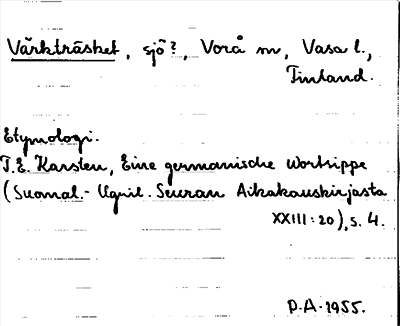 Värkträsket, sjö?, Vorå sn, Vasa l.,
Finland.
Etymologi.
T.E. Karsten, Eine germanische Wortsippe
(Suomal.-Ugril. Seuran Aikakauskirjasta
XXIII:20), s. 4.
P.A. 1955.